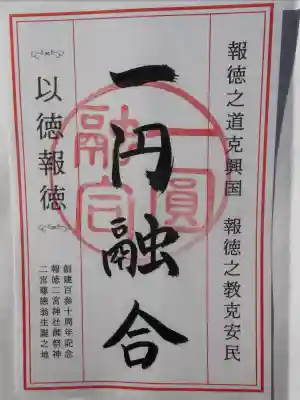 報徳之道克興国 報徳之教克安民
一円融合
一圓
融合
以徳報徳
創建百参十周年記念
報徳二宮神社御祭神
二宮尊徳翁生誕之地